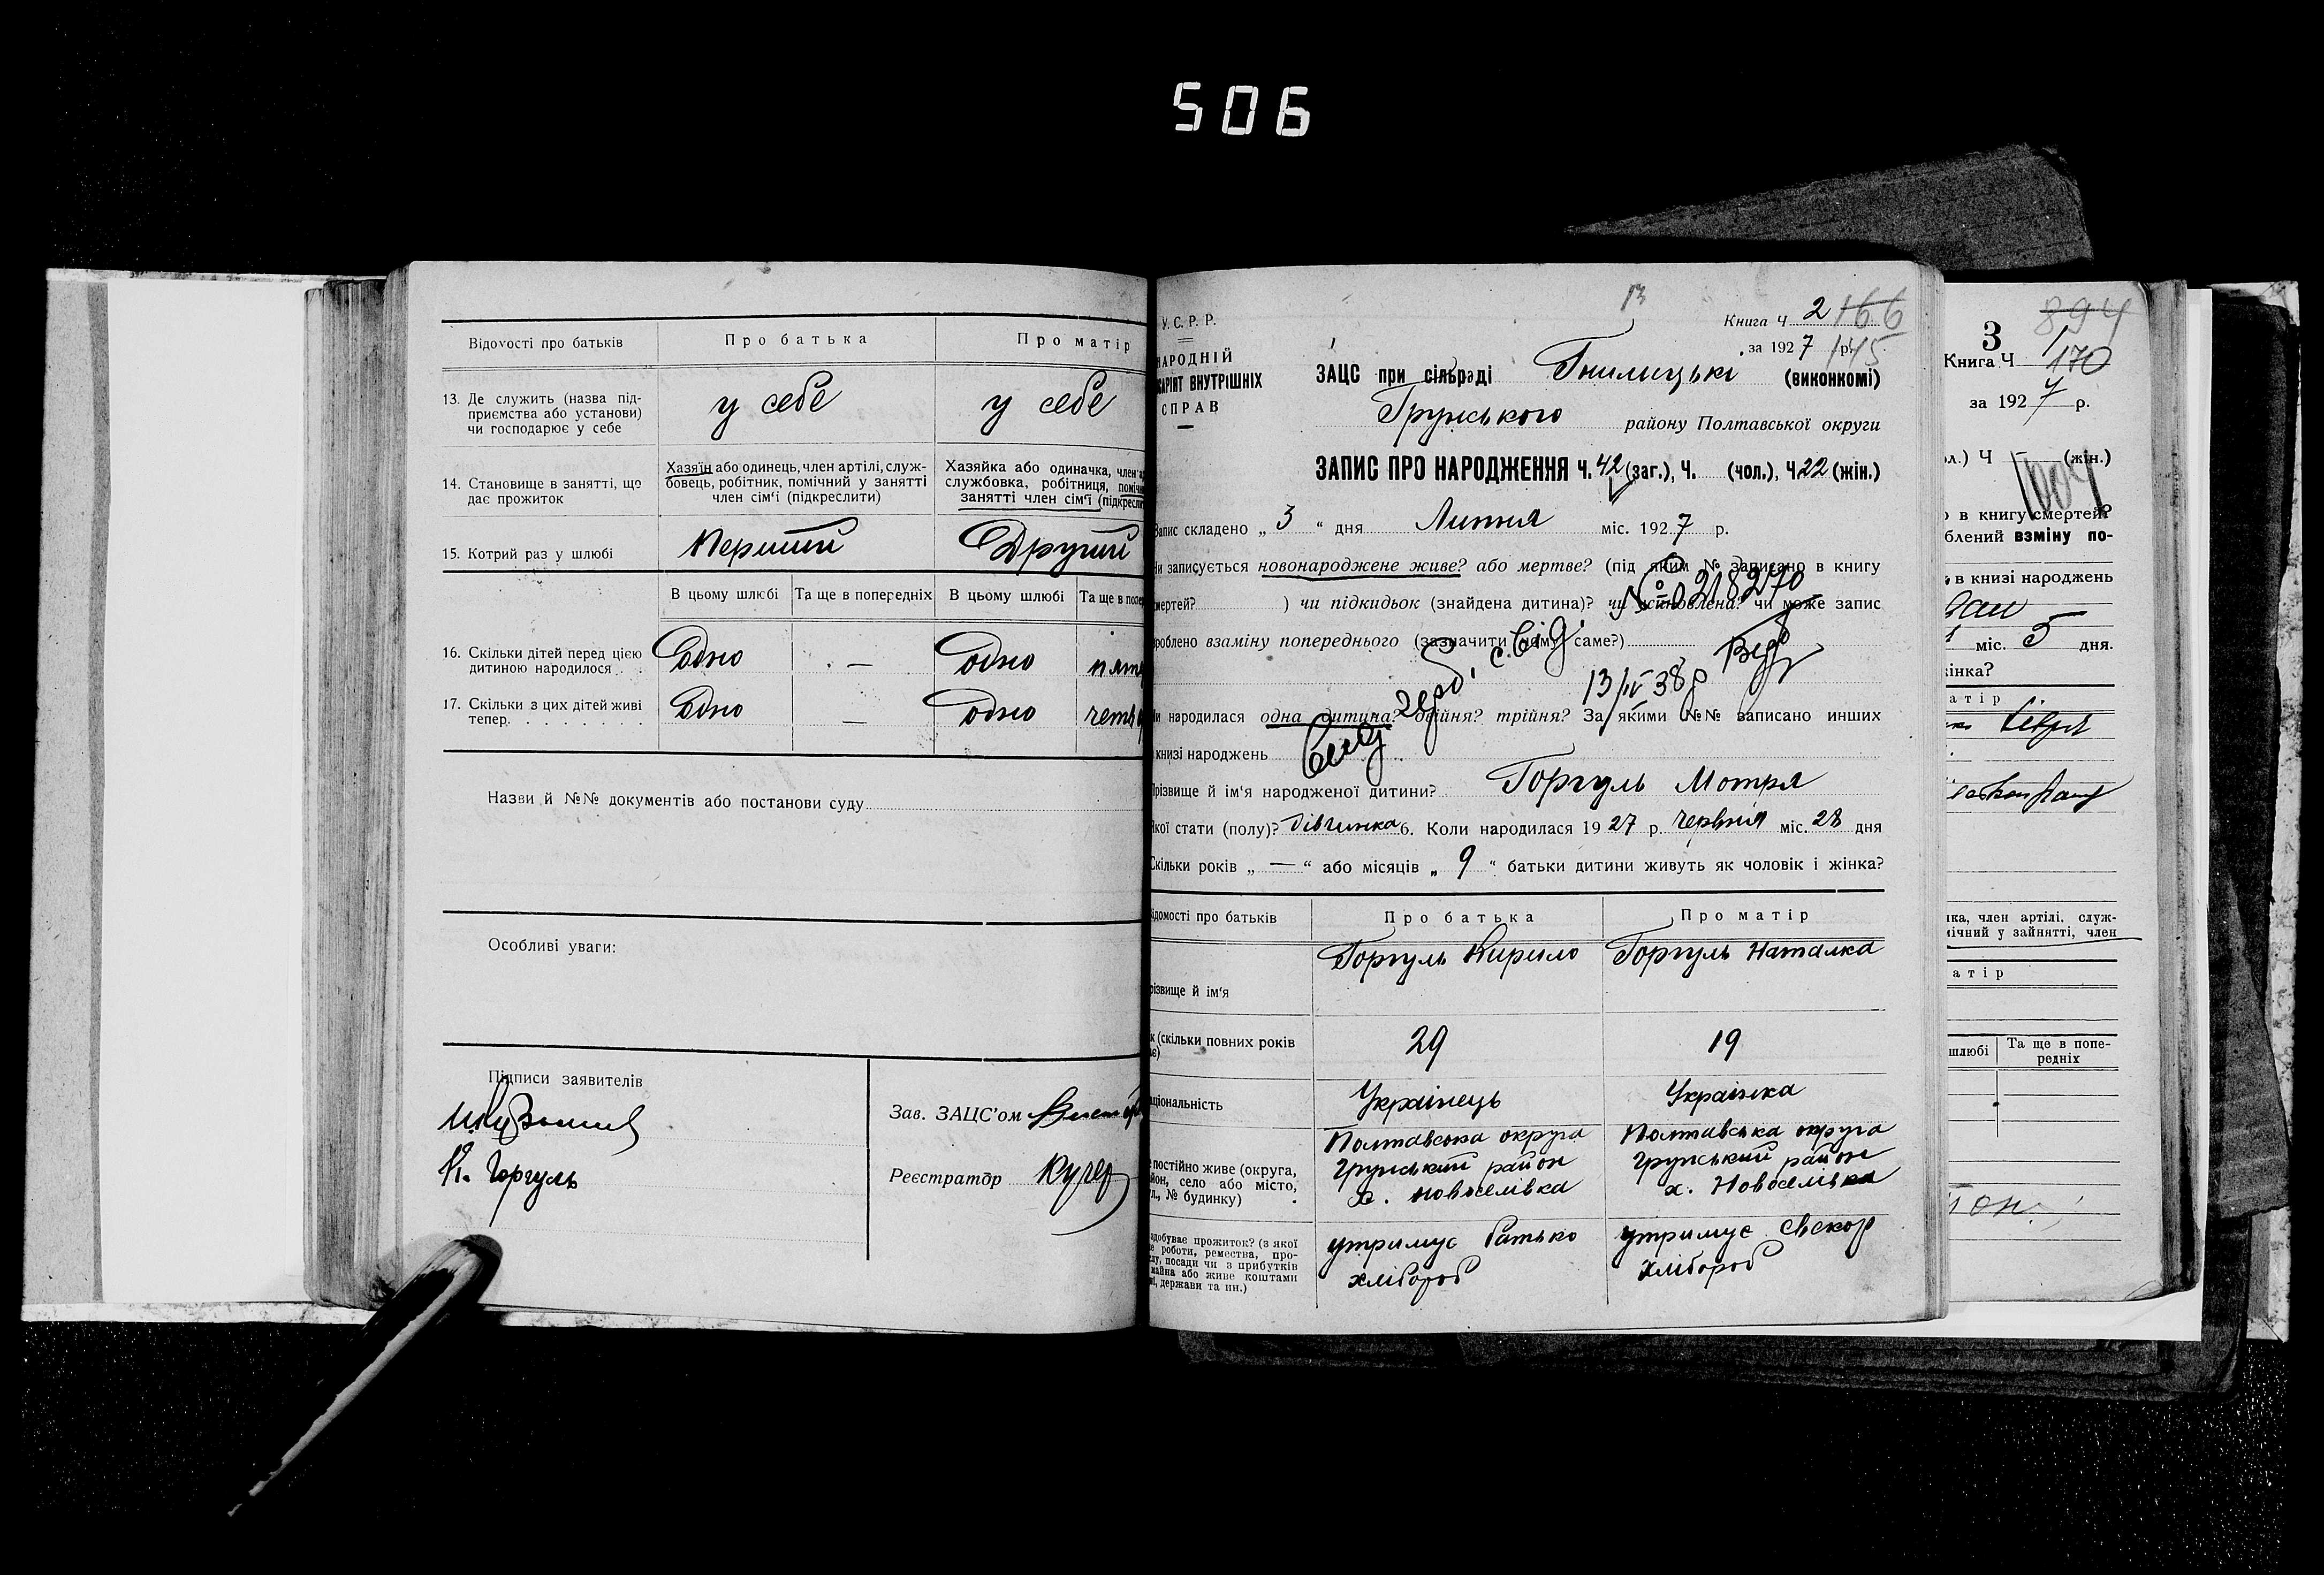 506
Відомости про батьків
Про батька
Про матір
13. Де служить (назва під-
приємства або установи)
чи господарює у себе
у себе
у себе
14. Становище в занятті, що
дає прожиток
Хазяїн або одинець, член артілі, служ-
бовець, робітник, помічний у занятті
член сім'ї (підкреслити)
Хазяйка або одиначка, член
службовка, робітниця,
занятті член сім'ї
15. Котрий раз у шлюбі
Перший
Другий
В цьому шлюбі
Та ще в попередніх
В цьому шлюбі
Та ще в
16. Скільки дітей перед цією
дитиною народилося . .
одно
. —
одно
17. Скільки з цих дітей живі
тепер. . . . . . . .
одно
—
одно
Назви й №№ документів або постанови суду
Особливі уваги:
Підписи заявителів
К. Горгуль
Зав. ЗАЦС'ом
Реєстратор Кучер
13
У. С. Р. Р.
НАРОДНІЙ
ВНУТРІШНІХ
СПРАВ
Книга Ч 2 166
за 1927 р. 145
ЗАЦС при сільраді Гнилицькі (виконкомі)
Грунського району Полтавської округи
ЗАПИС ПРО НАРОДЖЕННЯ Ч. 42 (заг.), Ч. (чол.), Ч 22 (жін.)
Запис складено „ 3 “ дня Липня міс. 1927 р.
Чи записується новонароджене живе? або мертве? (під яким № записано в книгу
смертей? ) чи підкидьок (знайдена дитина)? чи установлена? чи може запис
№ 0218270
зроблено взаміну попереднього (зазначити чому саме?)
13/IV 38 р
Чи народилася одна дитина? двійня? трійня? За якими №№ записано инших
книзі народжень
Прізвище й ім'я народженої дитини? Горгуль Мотря
Якої стати (полу)? дівчинка 6. Коли народилася 1927 р. червня міс. 28 дня
Скільки років „ — “ або місяців „ 9 “ батьки дитини живуть як чоловік і жінка?
Відомості про батьків
Про батька
Про матір
Прізвище й ім'я
Горгуль Кирило
Горгуль Наталка
(скільки повних років
29
19
Національність
Українець
Українка
постійно живе (округа,
район, село або місто,
№ будинку)
Полтавська округа
Грунський район
х. Новоселівка
Полтавська округа
Грунський район
х. Новоселівка
здобуває прожиток? (з якої
роботи, ремества, про-
посади чи з прибутків
майна або живе коштами
держави та ин.)
утримує батько
хлібороб
утримує свекор
хлібороб
894
3
Книга Ч 170
за 1927 р.
Ч (жін.)
в книгу смертей?
взміну по-
в книзі народжень
міс. 5 дня.
член артілі, служ-
у зайнятті, член
шлюбі
Та ще в попе-
редніх